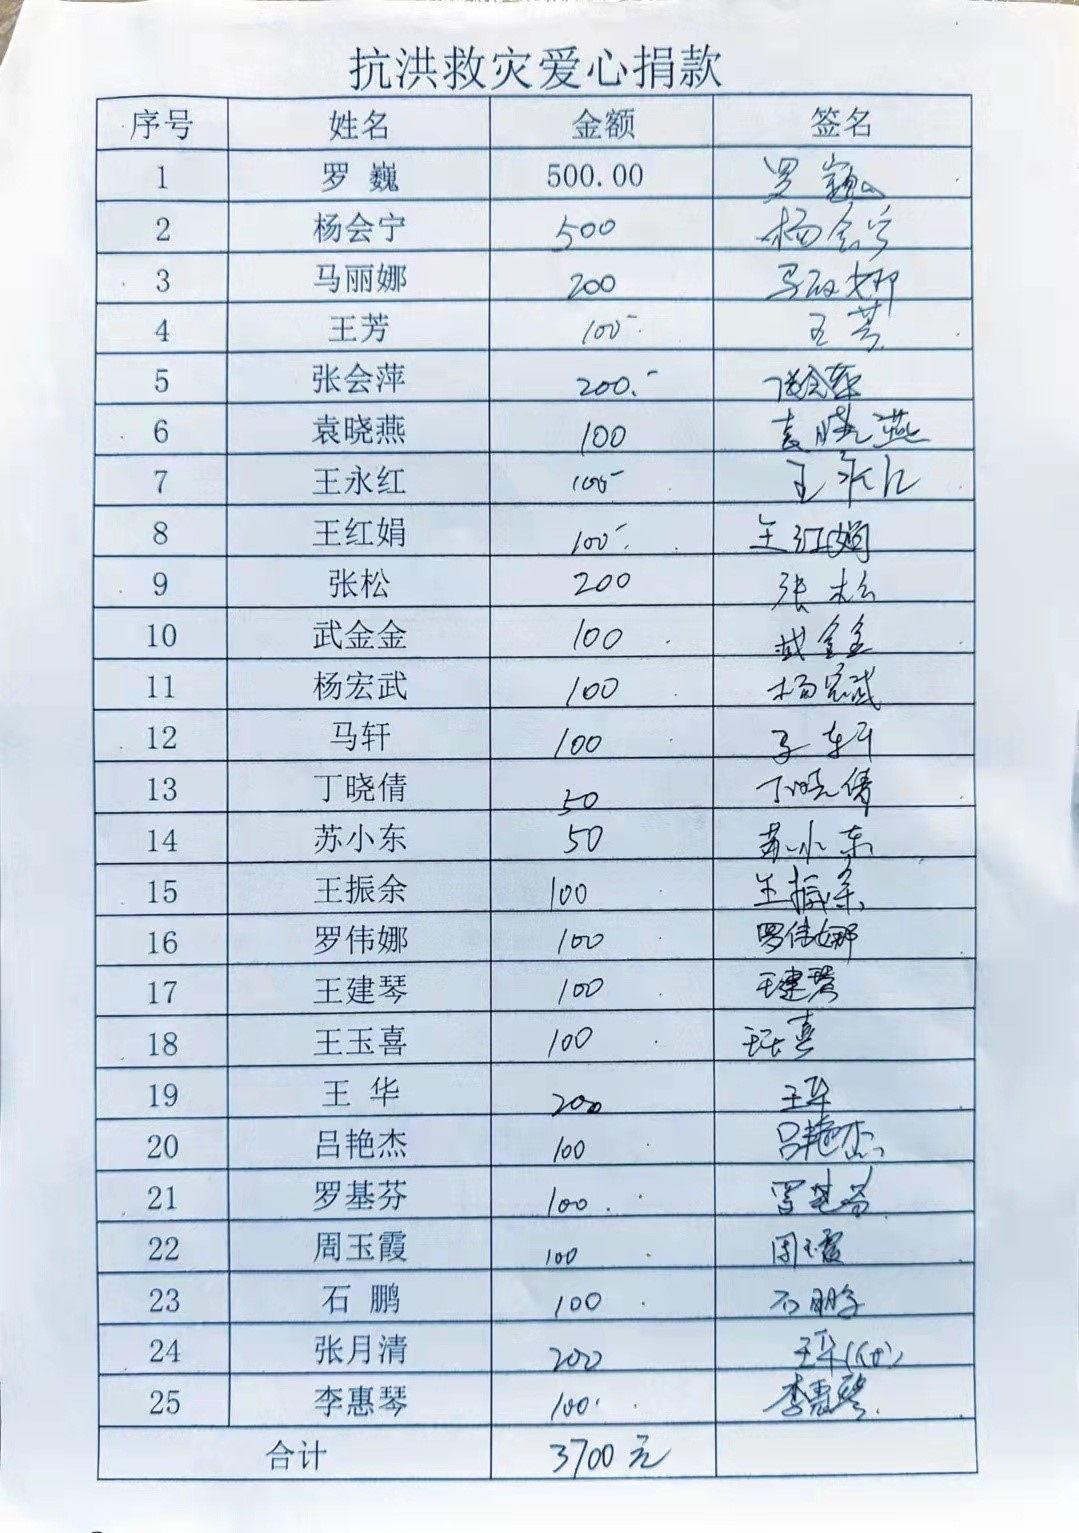 抗洪救灾爱心捐款
序号 姓名 金额 签名
1 罗 巍 500.00 罗巍
2 杨会宁 500 杨会宁
3 马丽娜 200 马丽娜
4 王芳 100- 王芳
5 张会萍 200.- 张会萍
6 袁晓燕 100 袁晓燕
7 王永红 100- 王永红
8 王红娟 100- 王红娟
9 张松 200 张松
10 武金金 100 武金金
11 杨宏武 100 杨宏武
12 马轩 100 马轩
13 丁晓倩 50 丁晓倩
14 苏小东 50 苏小东
15 王振余 100 王振余
16 罗伟娜 100 罗伟娜
17 王建琴 100 王建琴
18 王玉喜 100 王玉喜
19 王 华 200 王华
20 吕艳杰 100 吕艳杰
21 罗基芬 100 罗基芬
22 周玉霞 100 周玉霞
23 石 鹏 100 石鹏
24 张月清 200 王华(代)
25 李惠琴 100 李惠琴
合计 3700元